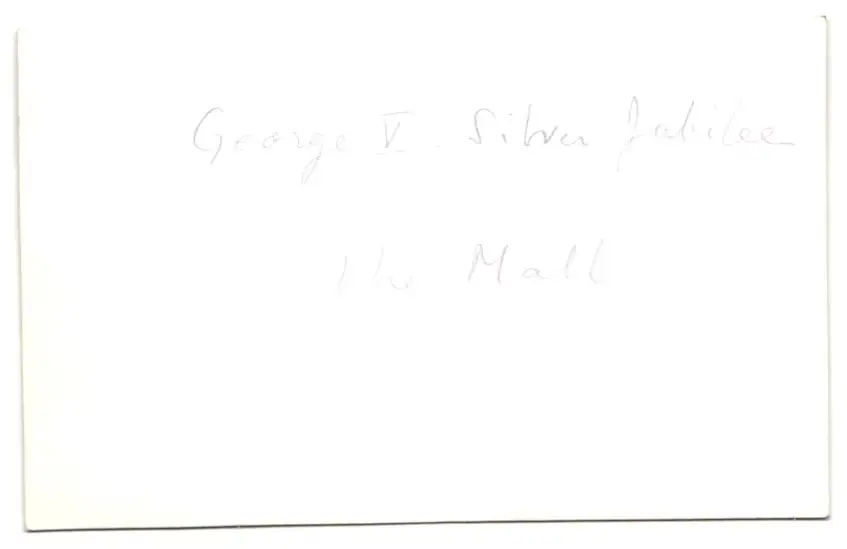 George V. Silver Jubilee
the Mall